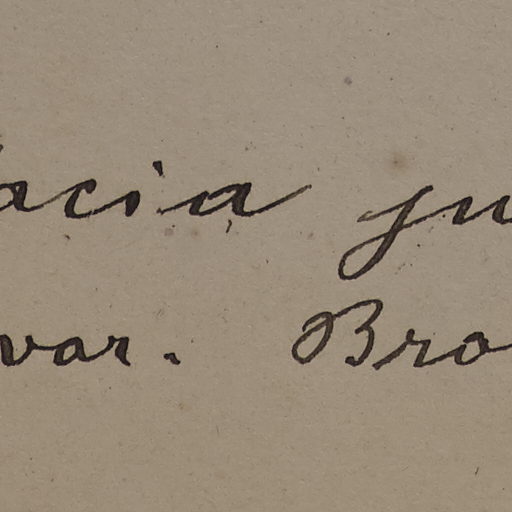 acia ju
var. Bro